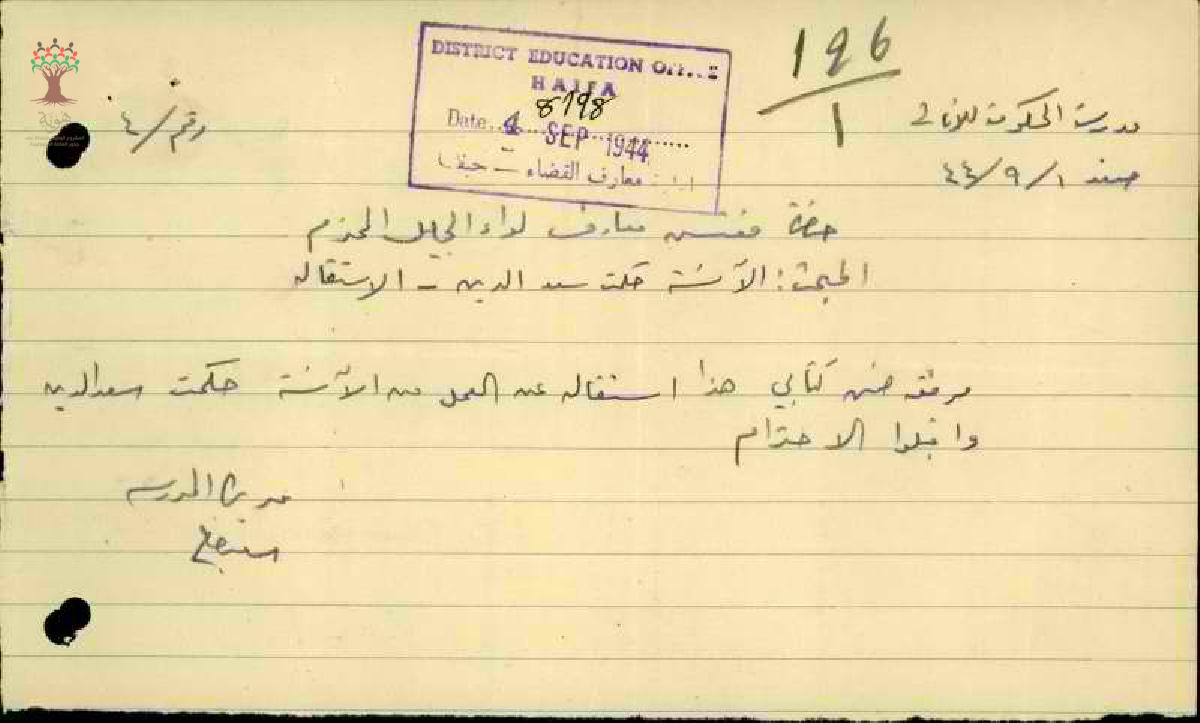 196
1
DISTRICT EDUCATION OFFICE
HAIFA
8198
Date 4 SEP 1944
معارف القضاء – حيفا
مدرسة الحكومة للاناث
صفد ١/٩/٤٤
رقم/٤
هوية
حضرة مفتش معارف لواء الجليل المحترم
المبحث: الآنسة حكمت سعد الدين – الاستقالة
مرفقه ضمن كتابي هذا استقاله عن العمل من الآنسة حكمت سعد الدين
واقبلوا الاحترام
مديرة المدرسه